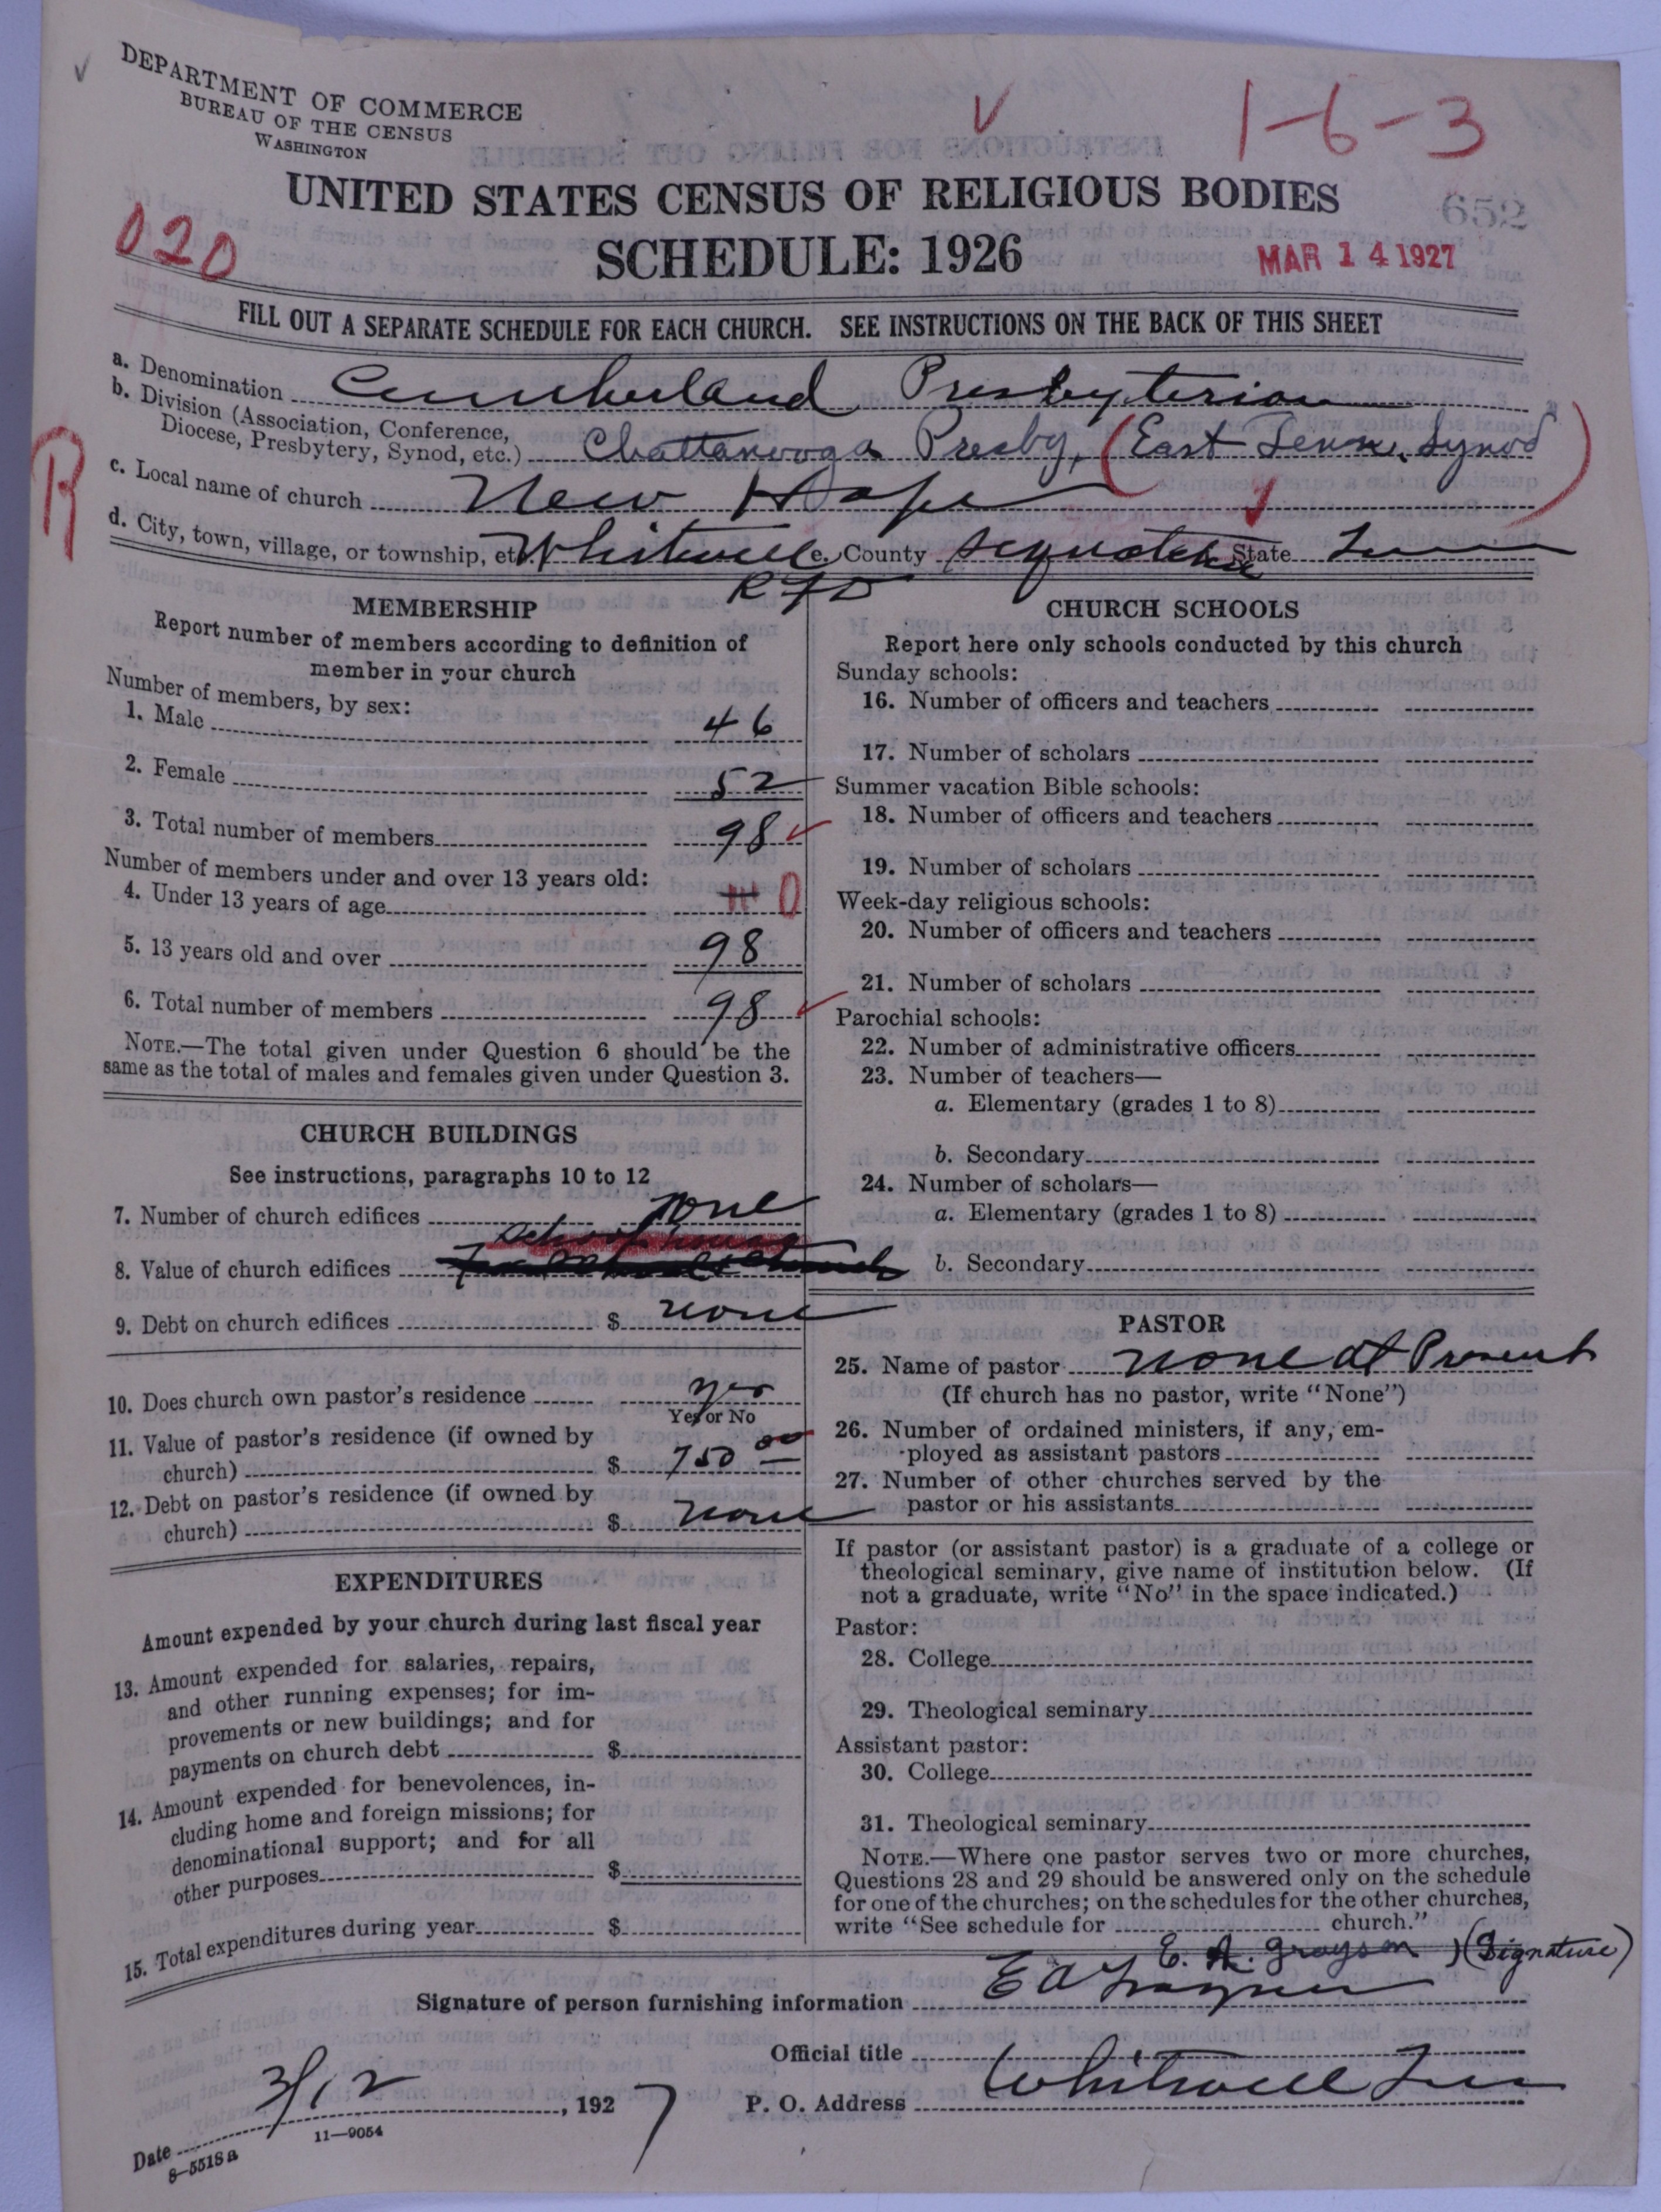 DEPARTMENT OF COMMERCE
BUREAU OF THE CENSUS
WASHINGTON
1-6-3
UNITED STATES CENSUS OF RELIGIOUS BODIES
652
020
SCHEDULE: 1926
MAR 14 1927
FILL OUT A SEPARATE SCHEDULE FOR EACH CHURCH. SEE INSTRUCTIONS ON THE BACK OF THIS SHEET
a. Denomination Cumberland Presbyterian
b. Division (Association, Conference,
Diocese, Presbytery, Synod, etc.) Chattanooga Presby, (East Tenn. Synod)
R
c. Local name of church New Hope
d. City, town, village, or township, etc. Whitwell e. County Sequatchie State Tenn
RFD
MEMBERSHIP
Report number of members according to definition of
member in your church
Number of members, by sex:
1. Male 46
2. Female 52
3. Total number of members 98
Number of members under and over 13 years old:
4. Under 13 years of age 0
5. 13 years old and over 98
6. Total number of members 98
NOTE.—The total given under Question 6 should be the
same as the total of males and females given under Question 3.
CHURCH BUILDINGS
See instructions, paragraphs 10 to 12
7. Number of church edifices none
School house
8. Value of church edifices
9. Debt on church edifices $ none
10. Does church own pastor's residence yes
Yes or No
11. Value of pastor's residence (if owned by
church) $ 750 00
12. Debt on pastor's residence (if owned by
church) $ none
EXPENDITURES
Amount expended by your church during last fiscal year
13. Amount expended for salaries, repairs,
and other running expenses; for im-
provements or new buildings; and for
payments on church debt $
14. Amount expended for benevolences, in-
cluding home and foreign missions; for
denominational support; and for all
other purposes $
15. Total expenditures during year $
CHURCH SCHOOLS
Report here only schools conducted by this church
Sunday schools:
16. Number of officers and teachers
17. Number of scholars
Summer vacation Bible schools:
18. Number of officers and teachers
19. Number of scholars
Week-day religious schools:
20. Number of officers and teachers
21. Number of scholars
Parochial schools:
22. Number of administrative officers
23. Number of teachers—
a. Elementary (grades 1 to 8)
b. Secondary
24. Number of scholars—
a. Elementary (grades 1 to 8)
b. Secondary
PASTOR
25. Name of pastor none at Present
(If church has no pastor, write "None")
26. Number of ordained ministers, if any, em-
ployed as assistant pastors
27. Number of other churches served by the
pastor or his assistants
If pastor (or assistant pastor) is a graduate of a college or
theological seminary, give name of institution below. (If
not a graduate, write "No" in the space indicated.)
Pastor:
28. College
29. Theological seminary
Assistant pastor:
30. College
31. Theological seminary
NOTE.—Where one pastor serves two or more churches,
Questions 28 and 29 should be answered only on the schedule
for one of the churches; on the schedules for the other churches,
write "See schedule for church."
E. A. Grayson (Signature)
Signature of person furnishing information E A Grayson
Official title
Date 3/12, 1927
P. O. Address Whitwell Tenn
11—9054
8—5518a